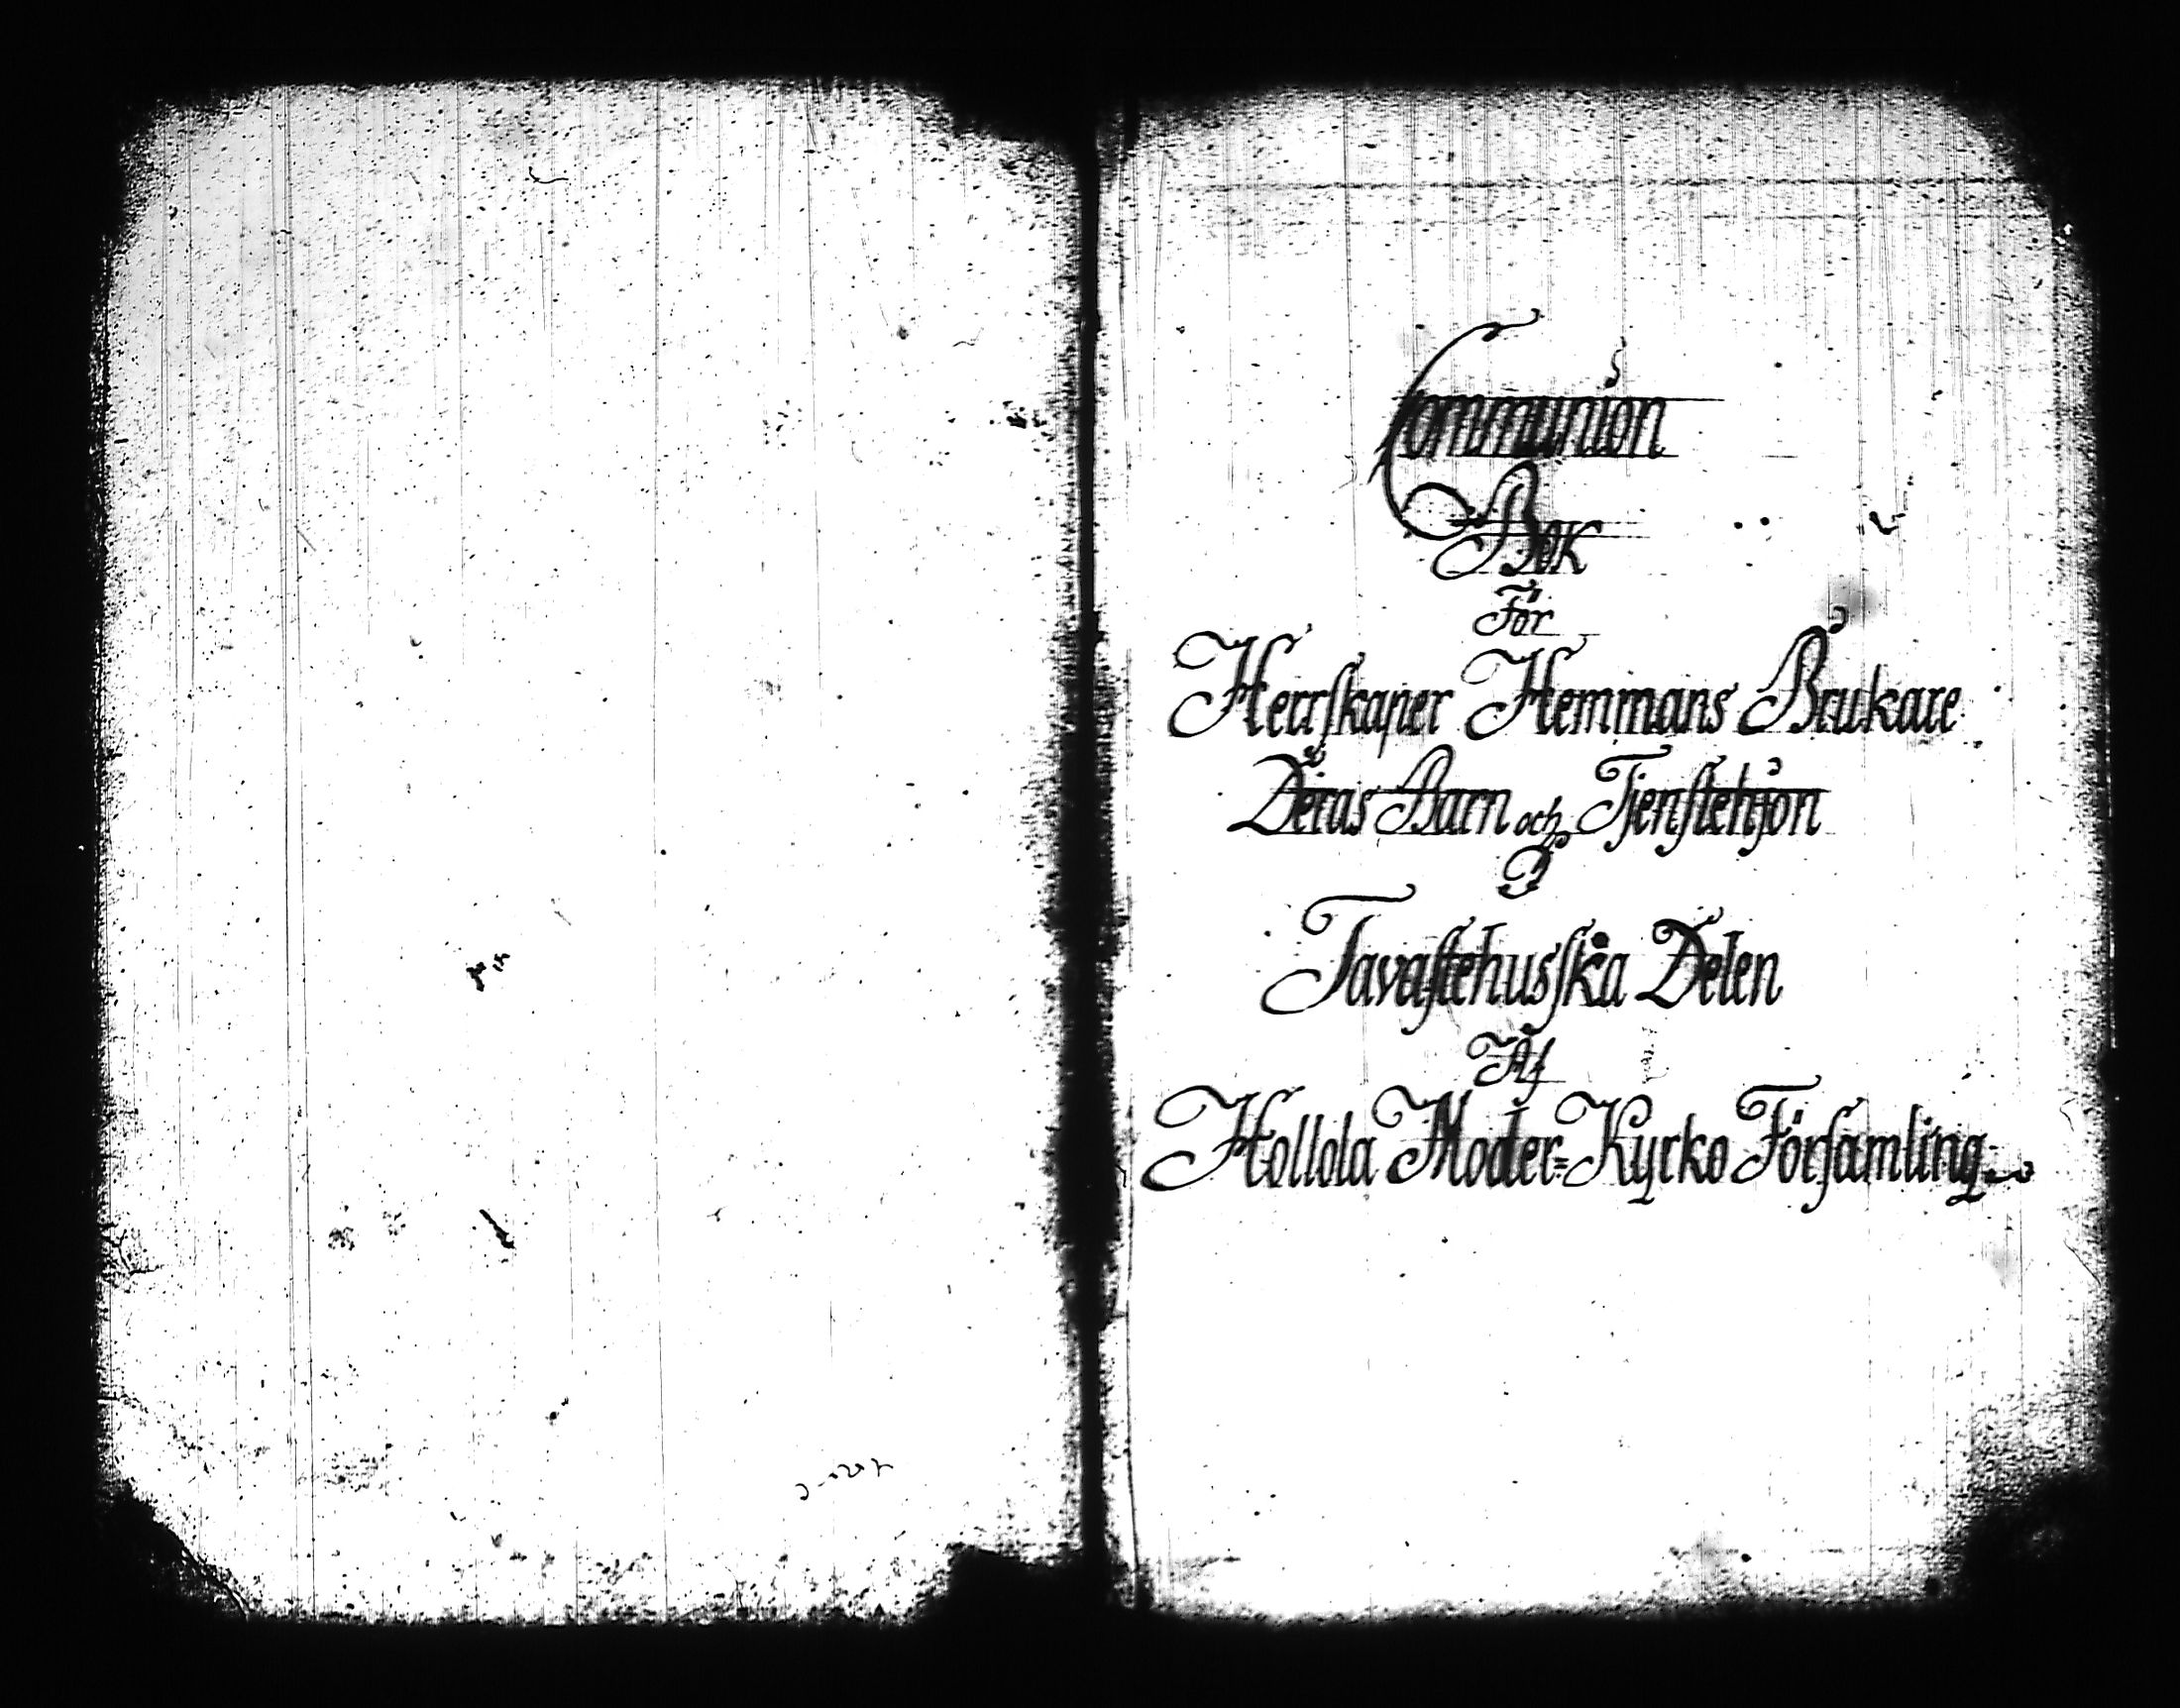 Communion
Bok
För
Herrskaper Hemmans Brukare
Deras Barn och Tjenstehjon
I
Tavastehusska Delen
Af
Hollola Moder=Kyrko Församling